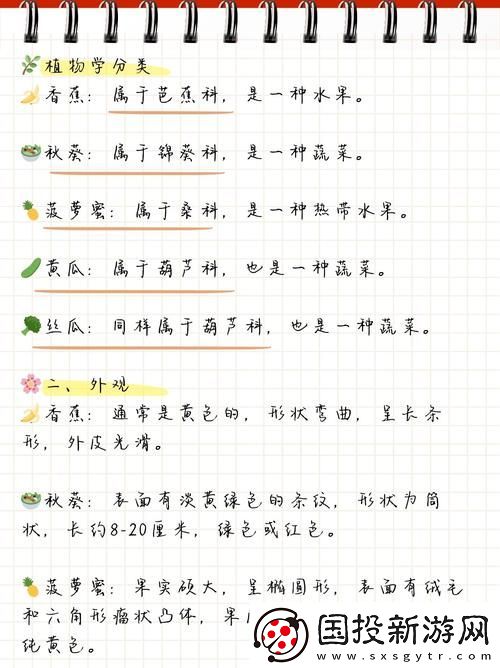 植物学分类
香蕉：属于芭蕉科，是一种水果。
秋葵：属于锦葵科，是一种蔬菜。
菠萝蜜：属于桑科，是一种热带水果。
黄瓜：属于葫芦科，也是一种蔬菜。
丝瓜：同样属于葫芦科，也是一种蔬菜。
二、外观
香蕉：通常是黄色的，形状弯曲，呈长条
形，外皮光滑。
秋葵：表面有淡黄绿色的条纹，形状为筒
状，长约8-20厘米，绿色或红色。
菠萝蜜：果实硕大，呈椭圆形，表面有绒毛
和六角形瘤状凸体，果
纯黄色。
国投新游网
www.sxsgytr.com